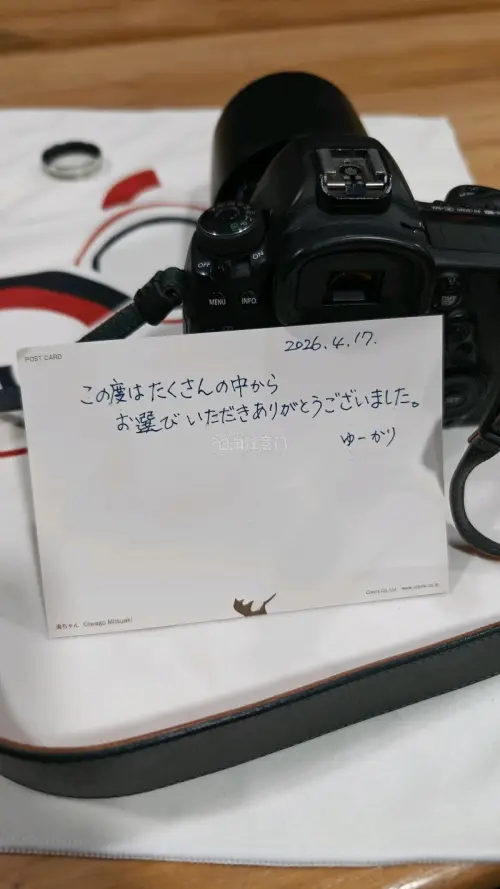 OFF
ON
MENU
INFO.
POST CARD
2026.4.17.
この度はたくさんの中から
お選びいただきありがとうございました。
ゆーかり
Iwago Mitsuaki